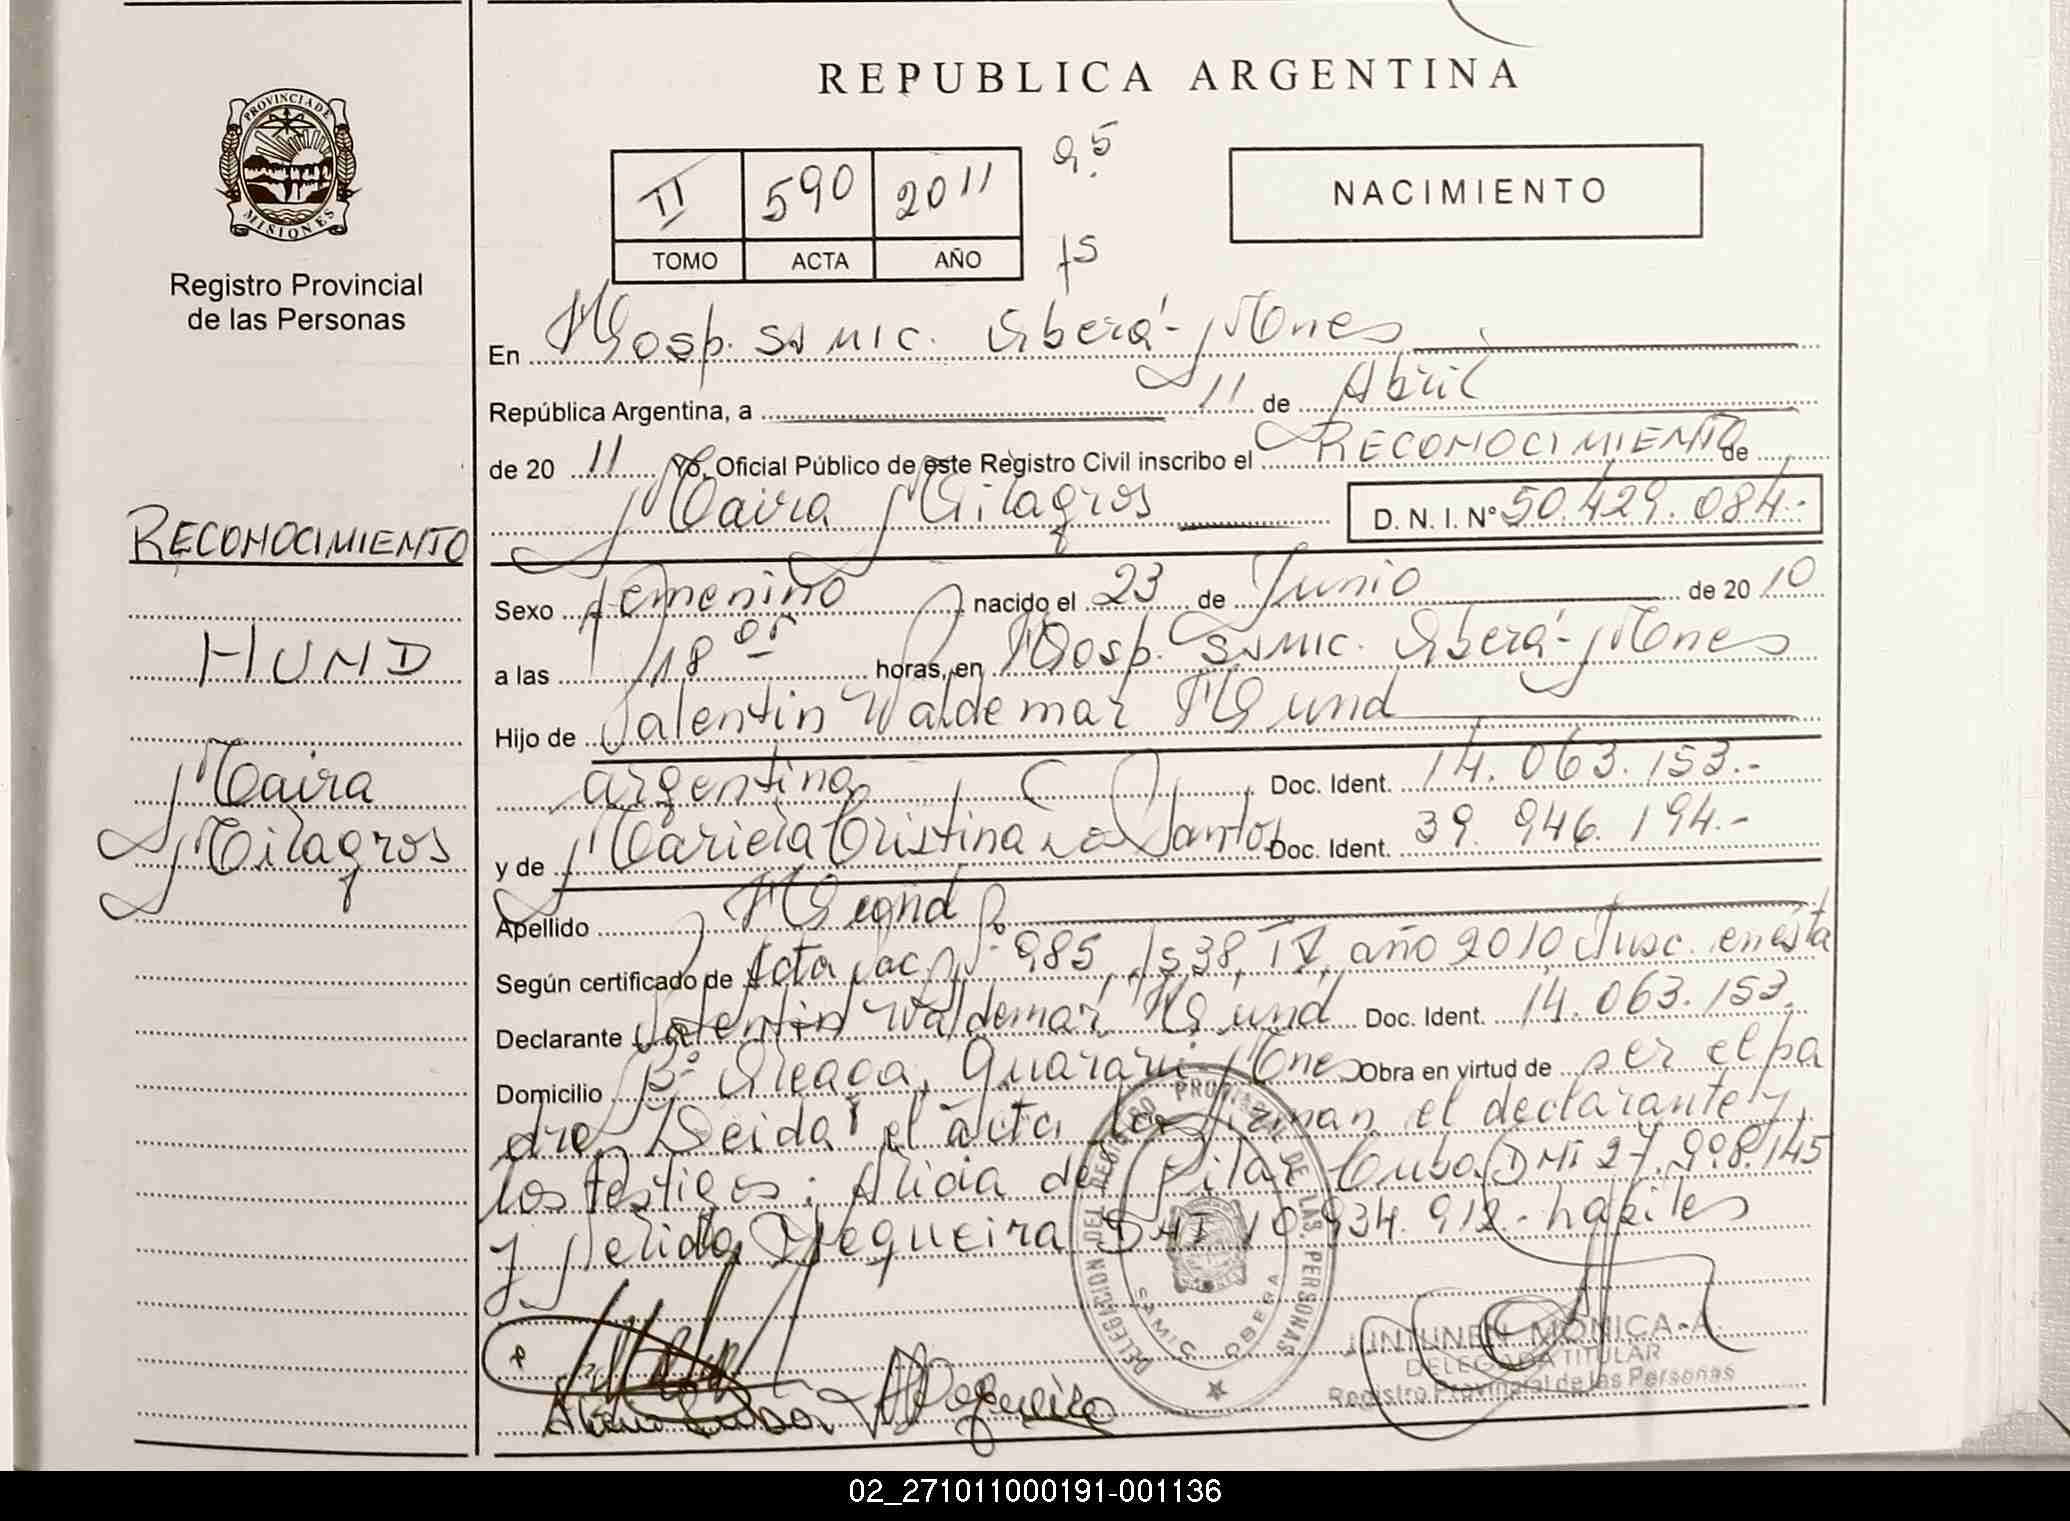 REPUBLICA ARGENTINA
PROVINCIA DE
MISIONES
Registro Provincial
de las Personas
II 590 2011 95
TOMO ACTA AÑO fs
NACIMIENTO
En Hosp. SAMIC. Oberá - Mnes
República Argentina, a 11 de Abril
de 20 11 Yo, Oficial Público de este Registro Civil inscribo el RECONOCIMIENTO de
Maira Milagros D. N. I. N° 50.429.084.-
RECONOCIMIENTO
HUND
Maira
Milagros
Sexo femenino nacido el 23 de Junio de 20 10
a las 18 horas, en Hosp. SAMIC. Oberá - Mnes
Hijo de Valentin Waldemar Hund
argentino Doc. Ident. 14.063.153.-
y de Mariela Cristina Dos Santos Doc. Ident. 39.946.194.-
Apellido Hund
Según certificado de Acta Nac. N° 985, fs 38, año 2010 Insc. en esta
Declarante Valentin Waldemar Hund Doc. Ident. 14.063.153.
Domicilio B° Guaraní Mnes Obra en virtud de ser el pa
dre. Leida el acta, la firman el declarante y
los testigos: Alicia del Pilar Cuba DNI 27.998.145
y Nelida Nequeira DNI 10.934.912.- habiles
DELEGACION DEL REGISTRO PROVINCIAL DE LAS PERSONAS
SAMIC OBERA
JUNTUNEN MONICA A.
DELEGADA TITULAR
Registro Provincial de las Personas
02_271011000191-001136